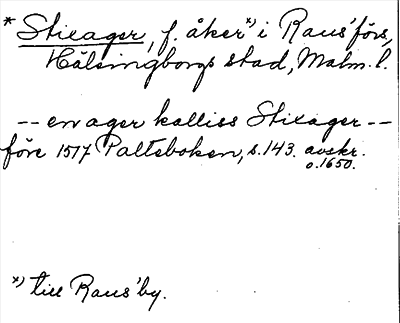 * Stixager, f. åker *) i Raus' förs,
Hälsingborgs stad, Malm. l.
-- en ager kalliss Stixager --
före 1517 Paltsboken, s. 143. avskr.
o. 1650.
*) till Raus' by.